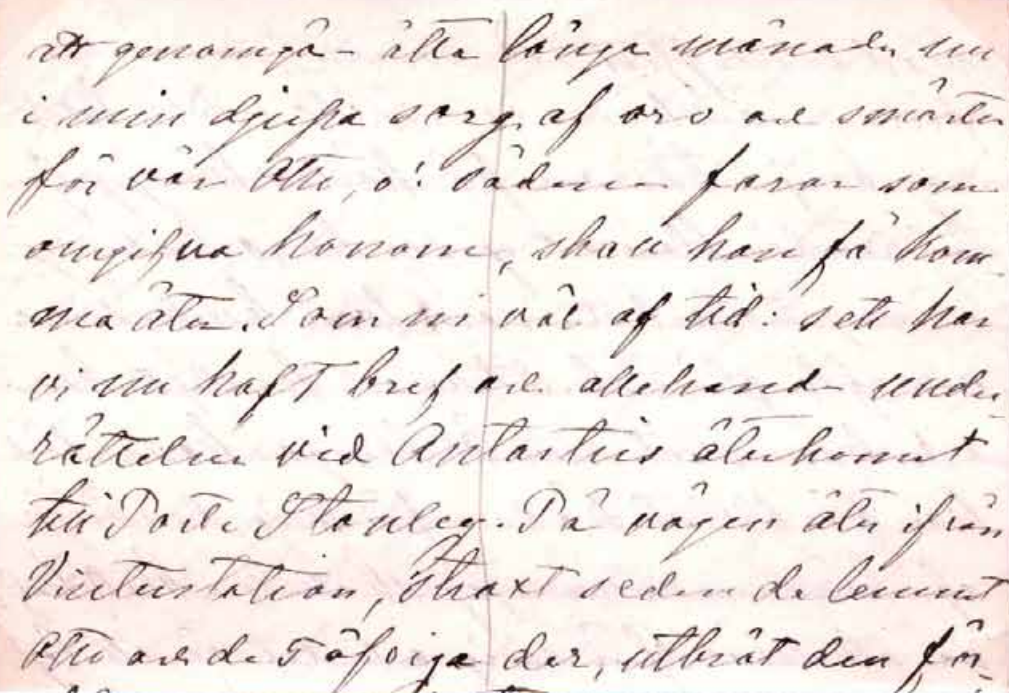 att genomgå – åtta långa månader nu
i min djupa sorg, af oro och smärta
för vår Otto, o! sådana faror som
omgifva honom, skall han få kom-
ma åter. Som ni väl af tid: sett har
vi nu haft bref och allehanda under-
rättelser vid Antarctics återkomst
till Porte Stanley. På vägen åter ifrån
Vinterstation, straxt sedan de lemnat
Otto och de 5 öfriga der, utbröt den för-